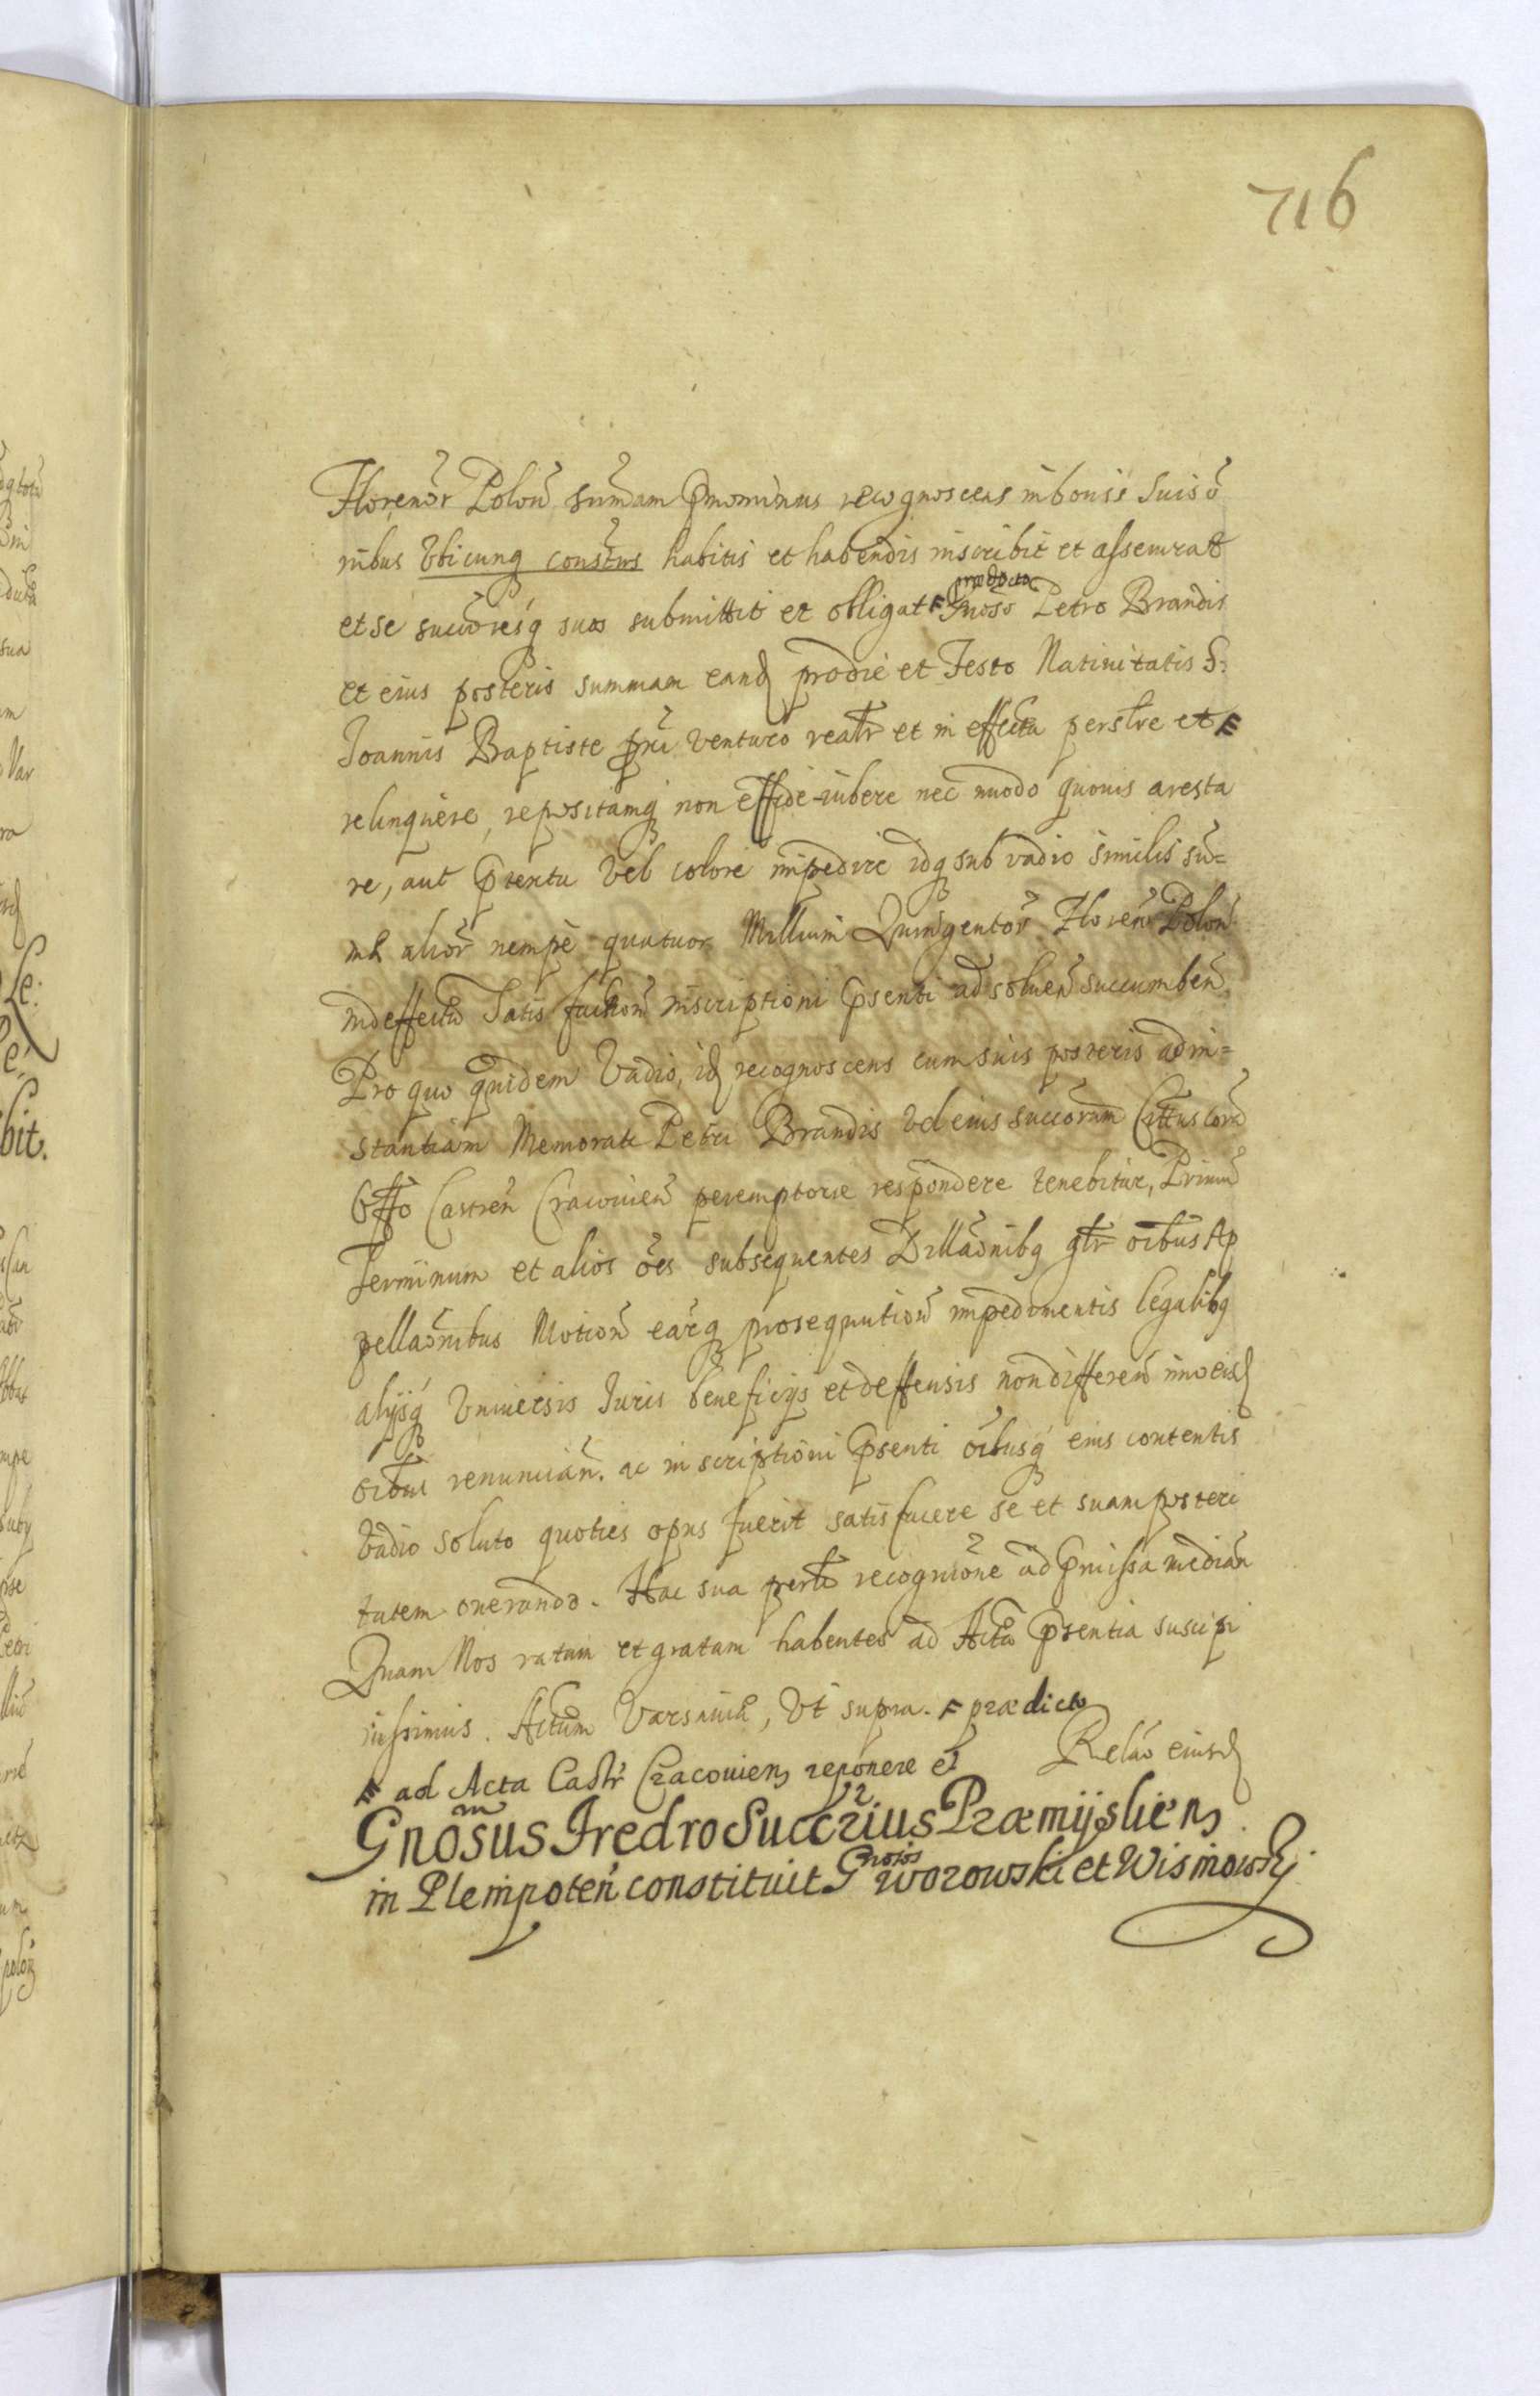 716
Florenor Polon summam pnominus recognoscens in bonis suis o
nibus Vbicunq constus habitis et habendis inscribit et assecurat
et se succoresq suos submittit et obligat Gnoso Petro Brandis
et eius posteris summam eand pro die et Festo Natiuitatis S:
Joannis Baptiste pxi venturo realr et in effectu perslre et
relinquere, repositamq non effide-iubere nec modo quouis aresta
re, aut ptextu vel colore impedire idq sub vadio similis su=
me alior nempe quatuor Millium Quingentor Floren Polon
in deffectu Satisfaction inscriptioni psenti ad soluen succumben
Pro quo quidem Vadio, id recognoscens cum suis posteris ad in=
stantiam Memorati Petri Brandis vel eius succorum Cittus coram
Offo Castren Cracouien peremptorie respondere tenebitur, Primum
Terminum et alios oes subsequentes Dillaonibq gtr oibus Ap
pellaonibus Motion earq prosequution impedimentis legalibq
alijsq Vniuersis Iuris beneficijs et deffensis non differen imo eisd
oibus renuncian. ac inscriptioni psenti oibusq eius contentis
Vadio soluto quoties opus fuerit satisfacere se et suam posteri
tatem onerando. Hac sua perle recognione ad pmissa median
Quam Nos ratam et gratam habentes ad Acta psentia suscipi
iussimus. Actum Varsauia, Vt supra. prædicto
ad Acta Castr Cracouien reponere et Relao eiusd
Gnosus Fredro Succrius Præmijslien
in Plenipoten constituit Gnosos Worowski et Wisniowski